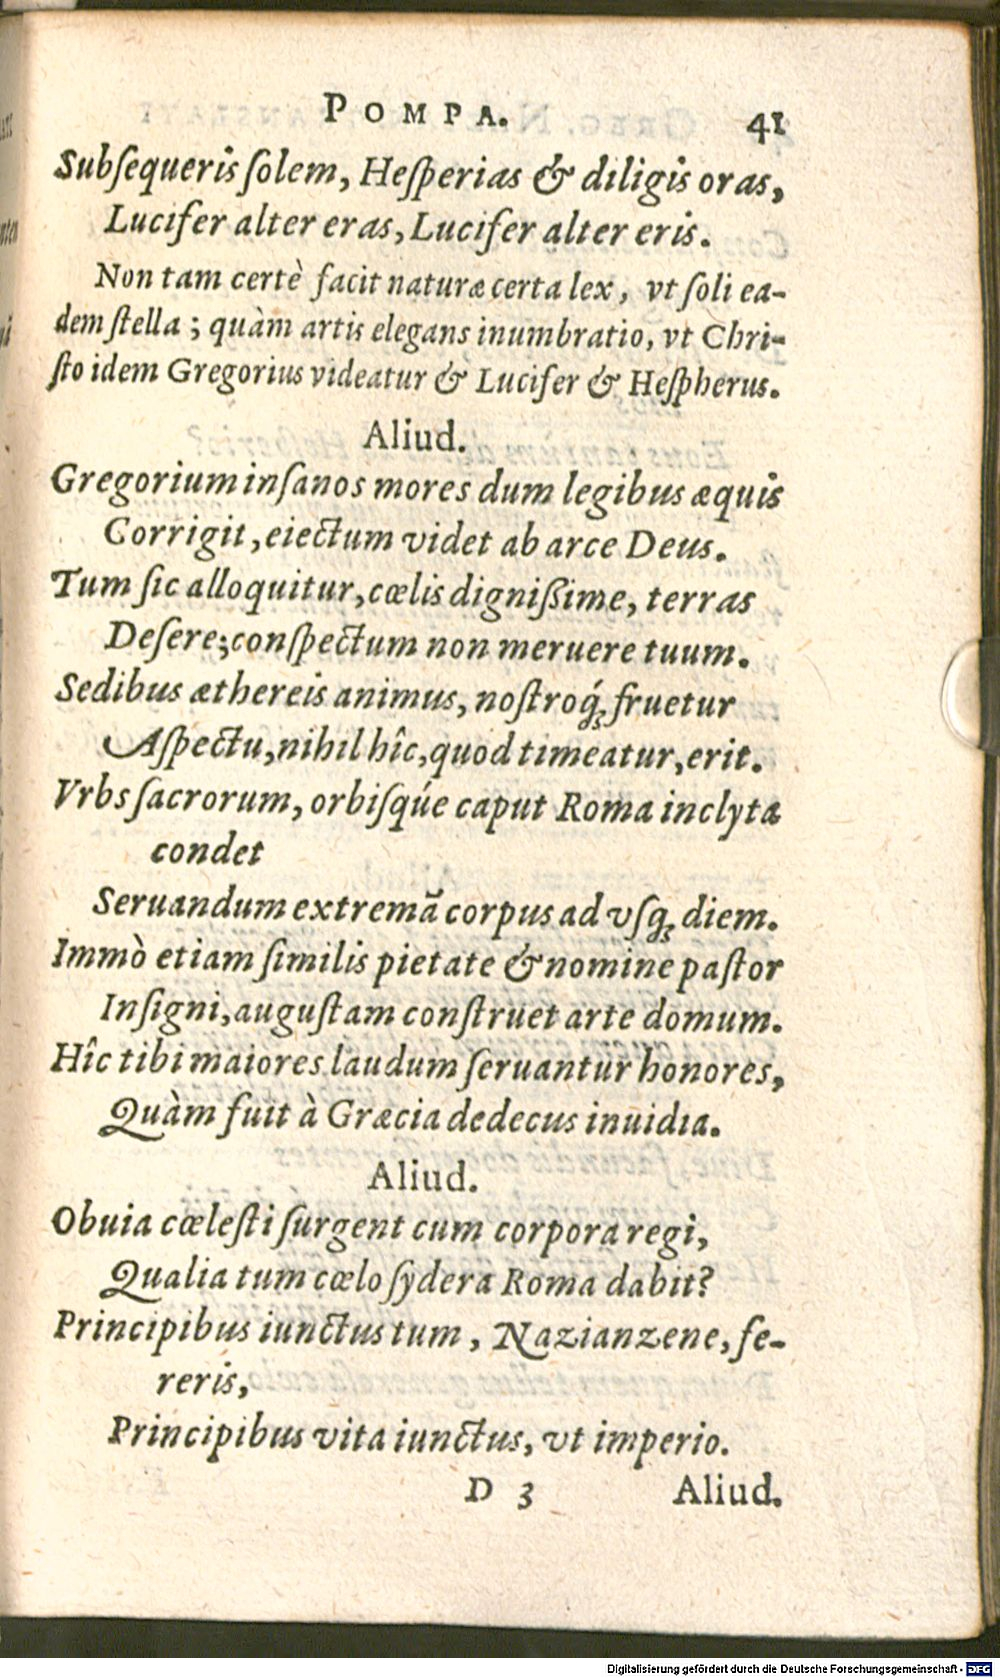 POMPA. 41
Subſequeris ſolem, Heſperias & diligis oras,
Lucifer alter eras, Lucifer alter eris.
Non tam certè facit naturæ certa lex, vt ſoli ea-
dem ſtella; quàm artis elegans inumbratio, vt Chri-
ſto idem Gregorius videatur & Lucifer & Heſpherus.
Aliud.
Gregorium inſanos mores dum legibus æquis
Corrigit, eiectum videt ab arce Deus.
Tum ſic alloquitur, cœlis digniſſime, terras
Deſere; conſpectum non meruere tuum.
Sedibus æthereis animus, noſtroq́; fruetur
Aſpectu, nihil hîc, quod timeatur, erit.
Vrbs ſacrorum, orbiſqúe caput Roma inclyta
condet
Seruandum extremã corpus ad vſq; diem.
Immò etiam ſimilis pietate & nomine paſtor
Inſigni, auguſtam conſtruet arte domum.
Hîc tibi maiores laudum ſeruantur honores,
Quàm fuit à Græcia dedecus inuidia.
Aliud.
Obuia cœleſti ſurgent cum corpora regi,
Qualia tum cœlo ſydera Roma dabit?
Principibus iunctus tum, Nazianzene, fe-
reris,
Principibus vita iunctus, vt imperio.
D 3 Aliud.
Digitalisierung gefördert durch die Deutsche Forschungsgemeinschaft - DFG